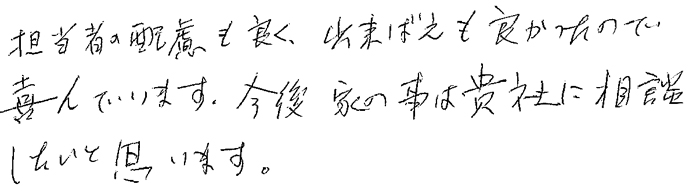 担当者の配慮も良く、出来ばえも良かったので
喜んでいます。今後家の事は貴社に相談
したいと思います。